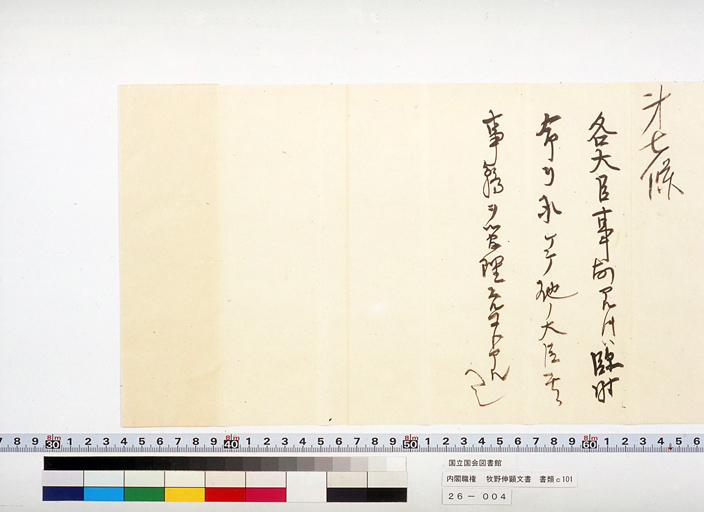 第七條
各大臣事故アルトキハ臨時
命ヲ承ケテ他ノ大臣其
事務ヲ管理スルコトアル
ヘシ
7 8 9 30 1 2 3 4 5 6 7 8 9 40 1 2 3 4 5 6 7 8 9 50 1 2 3 4 5 6 7 8 9 60 1 2 3 4 5 6
国立国会図書館
内閣職権 牧野伸顕文書 書類c101
26-004